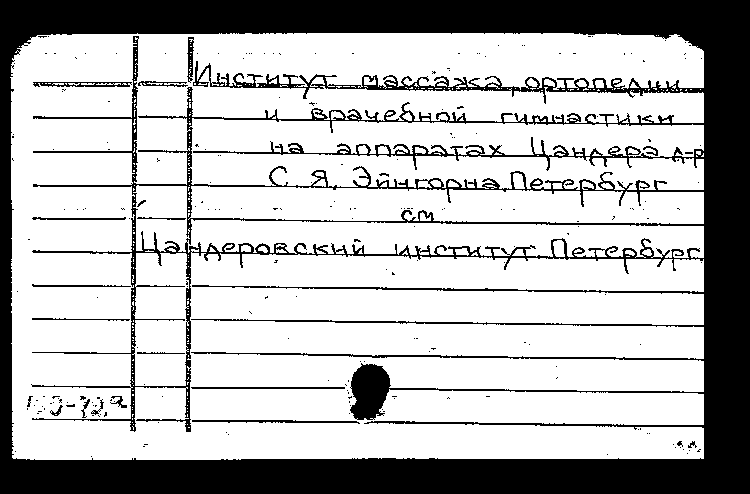 Институт массажа, ортопедии
и врачебной гимнастики
на аппаратах Цандера д-р
С. Я. Эйнгорна. Петербург
см
Цандеровский институт. Петербург.